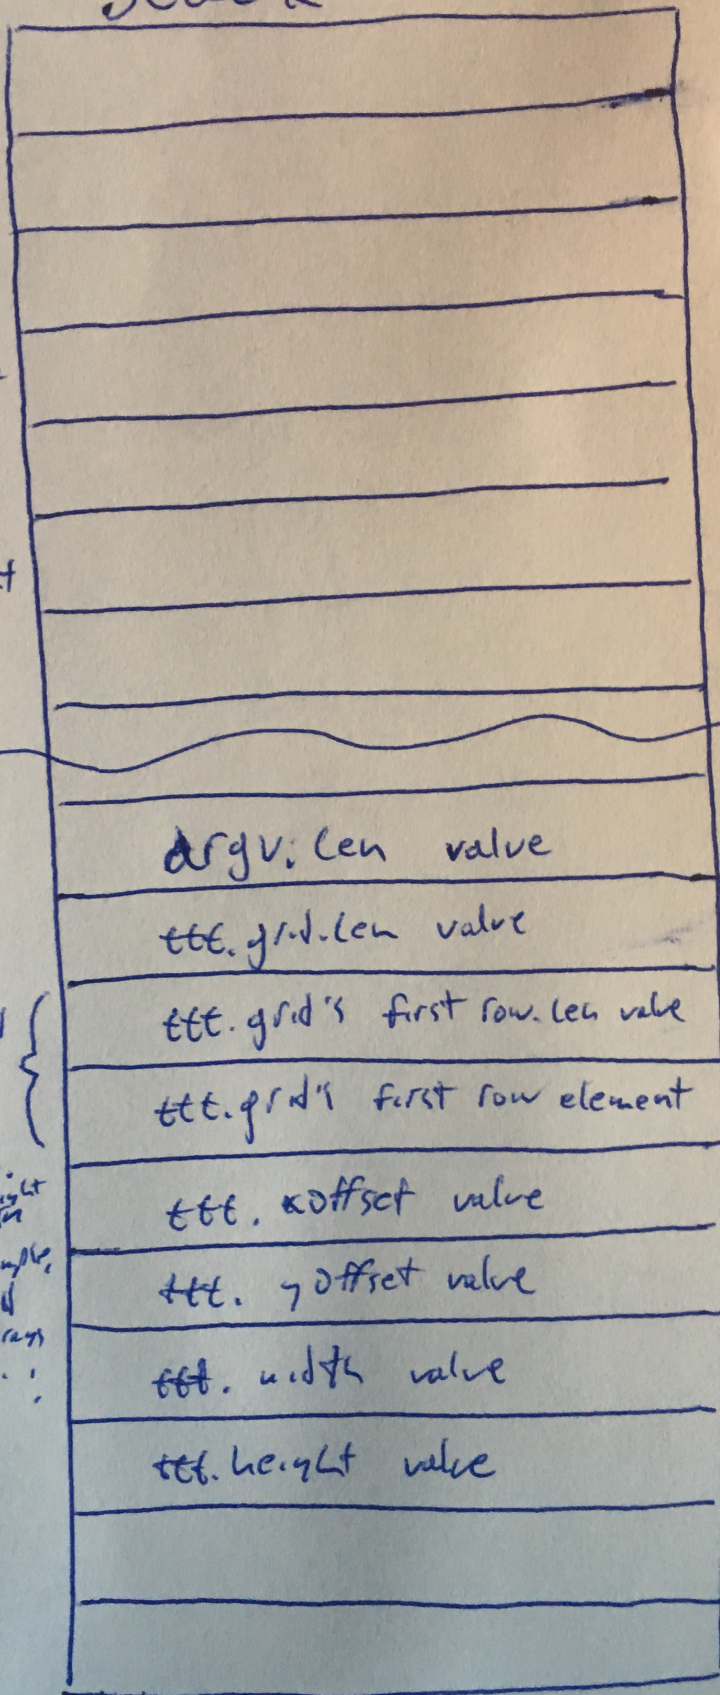 Stack
argv.len value
ttt.grid.len value
ttt.grid's first row.len value
ttt.grid's first row element
ttt. xOffset value
ttt. yOffset value
ttt. width value
ttt.height value